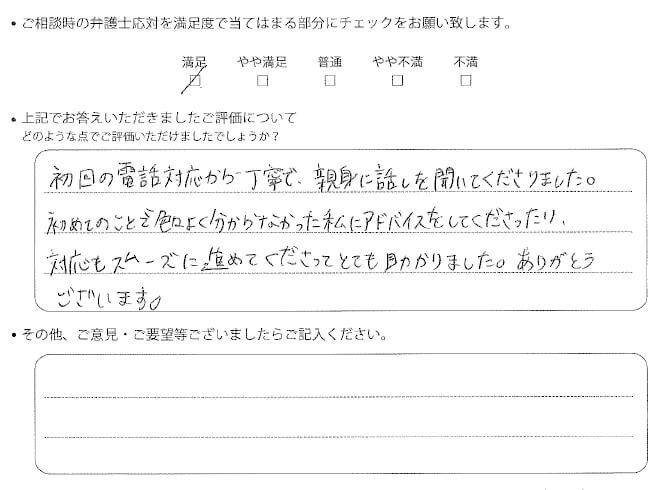 • ご相談時の弁護士応対を満足度で当てはまる部分にチェックをお願い致します。
満足 やや満足 普通 やや不満 不満
☑ □ □ □ □
• 上記でお答えいただきましたご評価について
どのような点でご評価いただけましたでしょうか?
初回の電話対応から丁寧で、親身に話しを聞いてくださりました。
初めてのことで色々よく分からなかった私にアドバイスをしてくださったり、
対応もスムーズに進めてくださってとても助かりました。ありがとう
ございます。
• その他、ご意見・ご要望等ございましたらご記入ください。